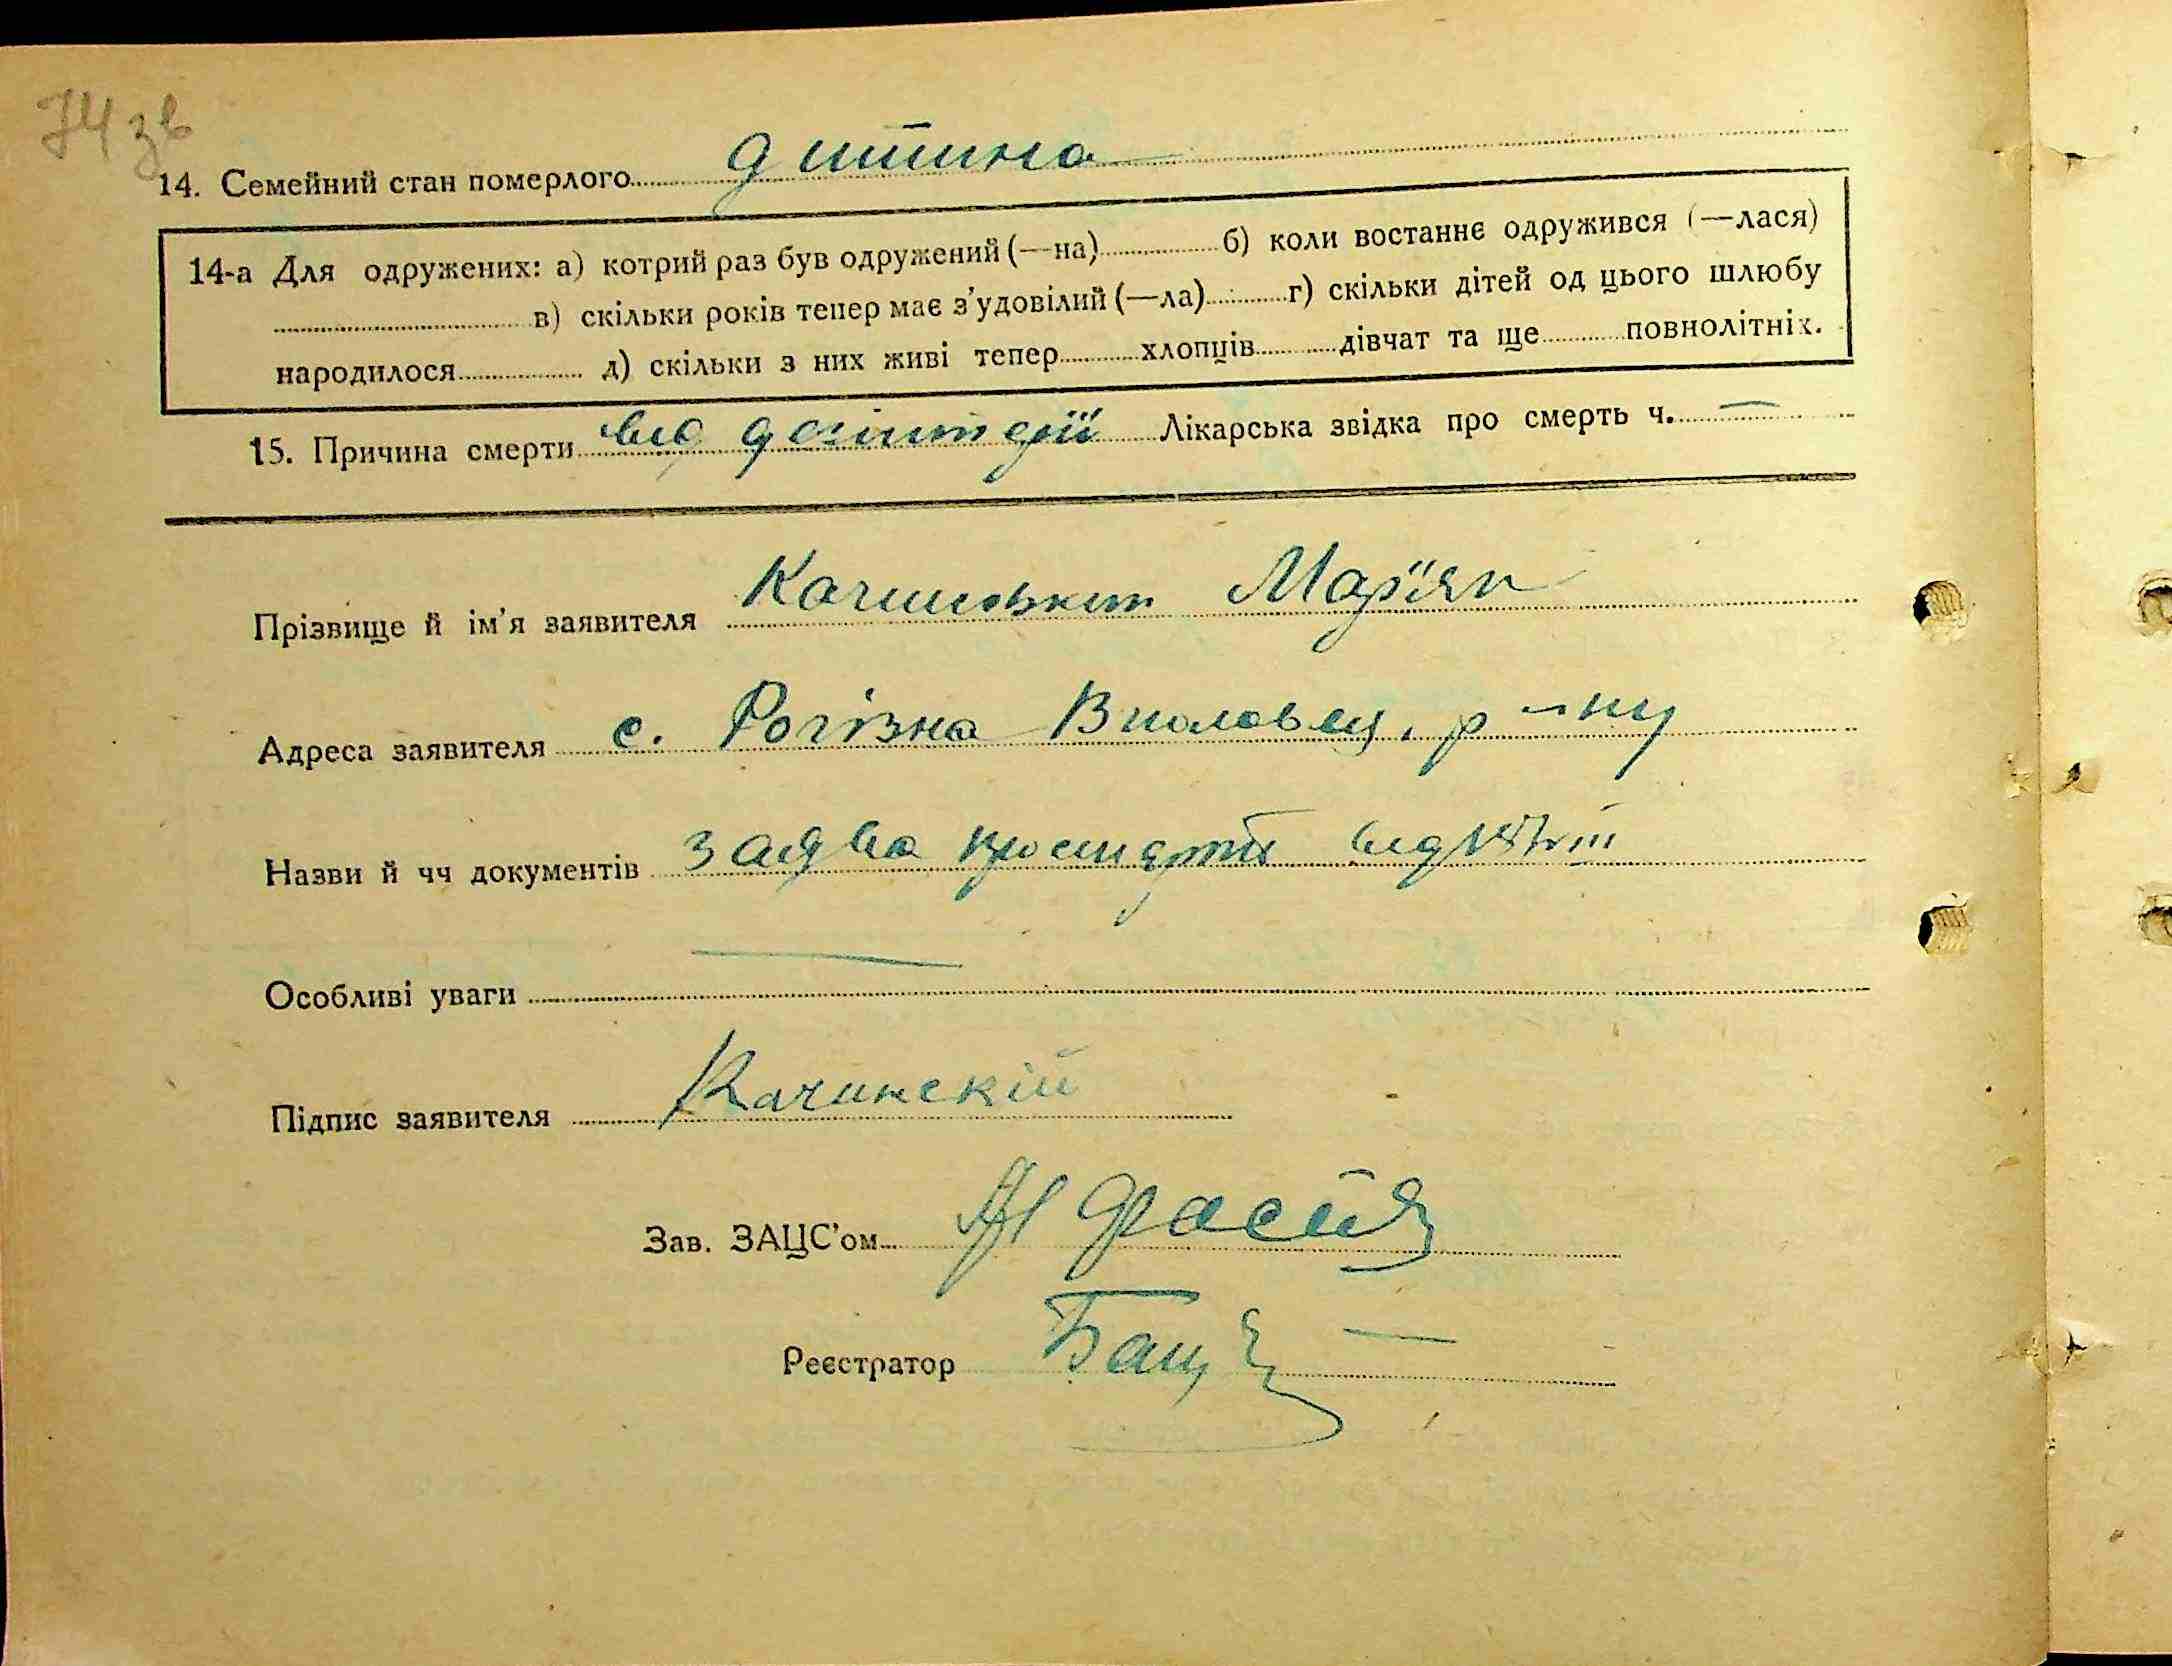 74 зв
14. Семейний стан померлого дитина
14-а Для одружених: а) котрий раз був одружений (—на) б) коли востаннє одружився (—лася)
в) скільки років тепер має з'удовілий (—ла) г) скільки дітей од цього шлюбу
народилося д) скільки з них живі тепер хлопців дівчат та ще повнолітніх.
15. Причина смерти від дезінтерії Лікарська звідка про смерть ч. —
Прізвище й ім'я заявителя Мар'ян
Адреса заявителя с. Рогізна р-ну
Назви й чч документів заява
Особливі уваги —
Підпис заявителя Качинскій
Зав. ЗАЦС'ом
Реєстратор